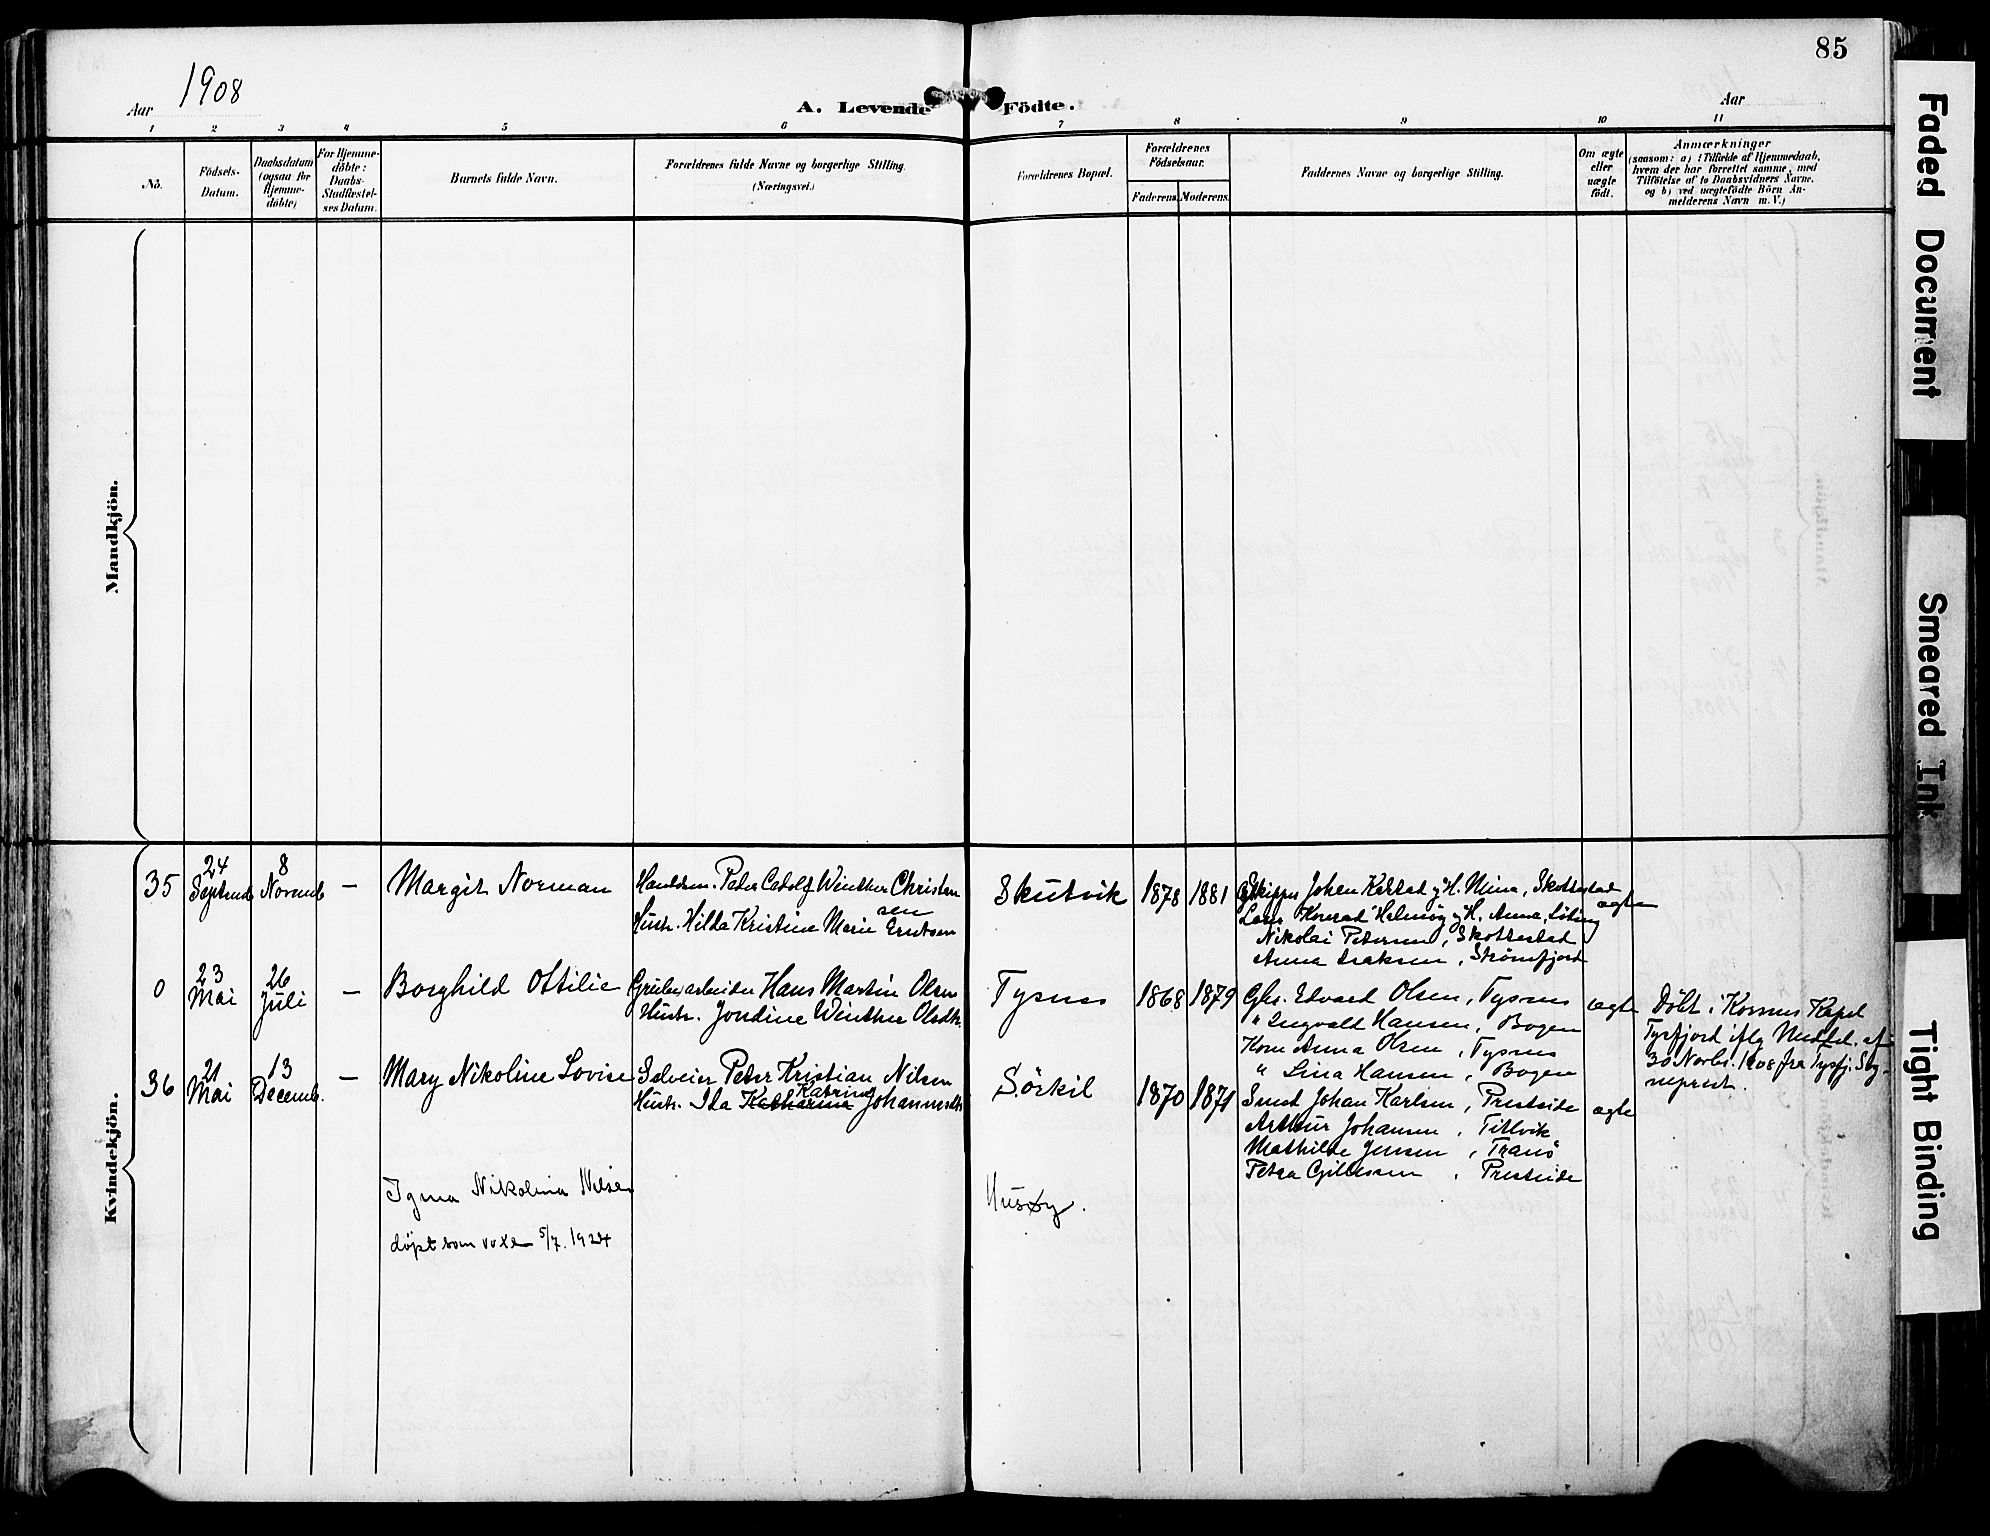 85
Aar 1908
A. Levende Födte.
Aar
1 2 3 4 5 6 7 8 9 10 11
No.
Födsels-
Datum.
Daabsdatum
(ogsaa for
Hjemme-
döbte)
For Hjemme-
döbte:
Daabs-
Stadfæstel-
ses Datum.
Barnets fulde Navn.
Forældrenes fulde Navne og borgerlige Stilling.
(Næringsvei.)
Forældrenes Bopæl.
Forældrenes
Födselsaar.
Faderens. Moderens.
Faddernes Navne og borgerlige Stilling.
Om ægte
eller
uægte
födt.
Anmærkninger
(saasom: a) i Tilfælde af Hjemmedaab,
hvem der har forrettet samme, med
Tilföielse af to Daabsvidners Navne,
og b) ved uægtefödte Börn An-
melderens Navn m. V.)
Mandkjön.
Kvindekjön.
35
24
Septemb
8
Novemb
—
Margit Norman
Handelsm. Peder Cadolf Winther Christen
sen
Hustr. Hilda Kristine Marie Erntsen
Skutvik
1878
1881
Johan Kristad g H. Mina, Skottestad
Lars Konrad Helmög g H. Anna,
Nikolai Petersen, Skottestad
Anna Isaksen, Strömfjord
ægte
0
23
Mai
26
Juli
—
Borghild Ottilie
Grubearbeider Hans Martin Olsen
Hustr. Jondine Winther Olsdtr.
Tysnes
1868
1879
Gbr. Edvard Olsen, Tysnes
" Ingvald Hansen, Bogen
Kone Anna Olsen, Tysnes
" Lina Hansen, Bogen
ægte
Döbt i Korsnes Kapel
Tysfjord iflg Meddel. af
30 Novbr. 1908 fra Tysfj. Sog-
neprest.
36
21
Mai
13
Decemb.
—
Mary Nikoline Lovise
Selveier Peter Kristian Nilsen
Katrine
Hustr. Ida Katharina Johannesdtr
Sörkil
1870
1871
Smed Johan Karlsen, Presteide
Arthur Johansen, Tillvik
Mathilde Jensen, Tranö
Petra Gjillesen, Presteide
ægte
Igna Nikolina Nilsen
Husøy.
døpt som voxen 5/7. 1924
Faded Document
Smeared Ink
Tight Binding